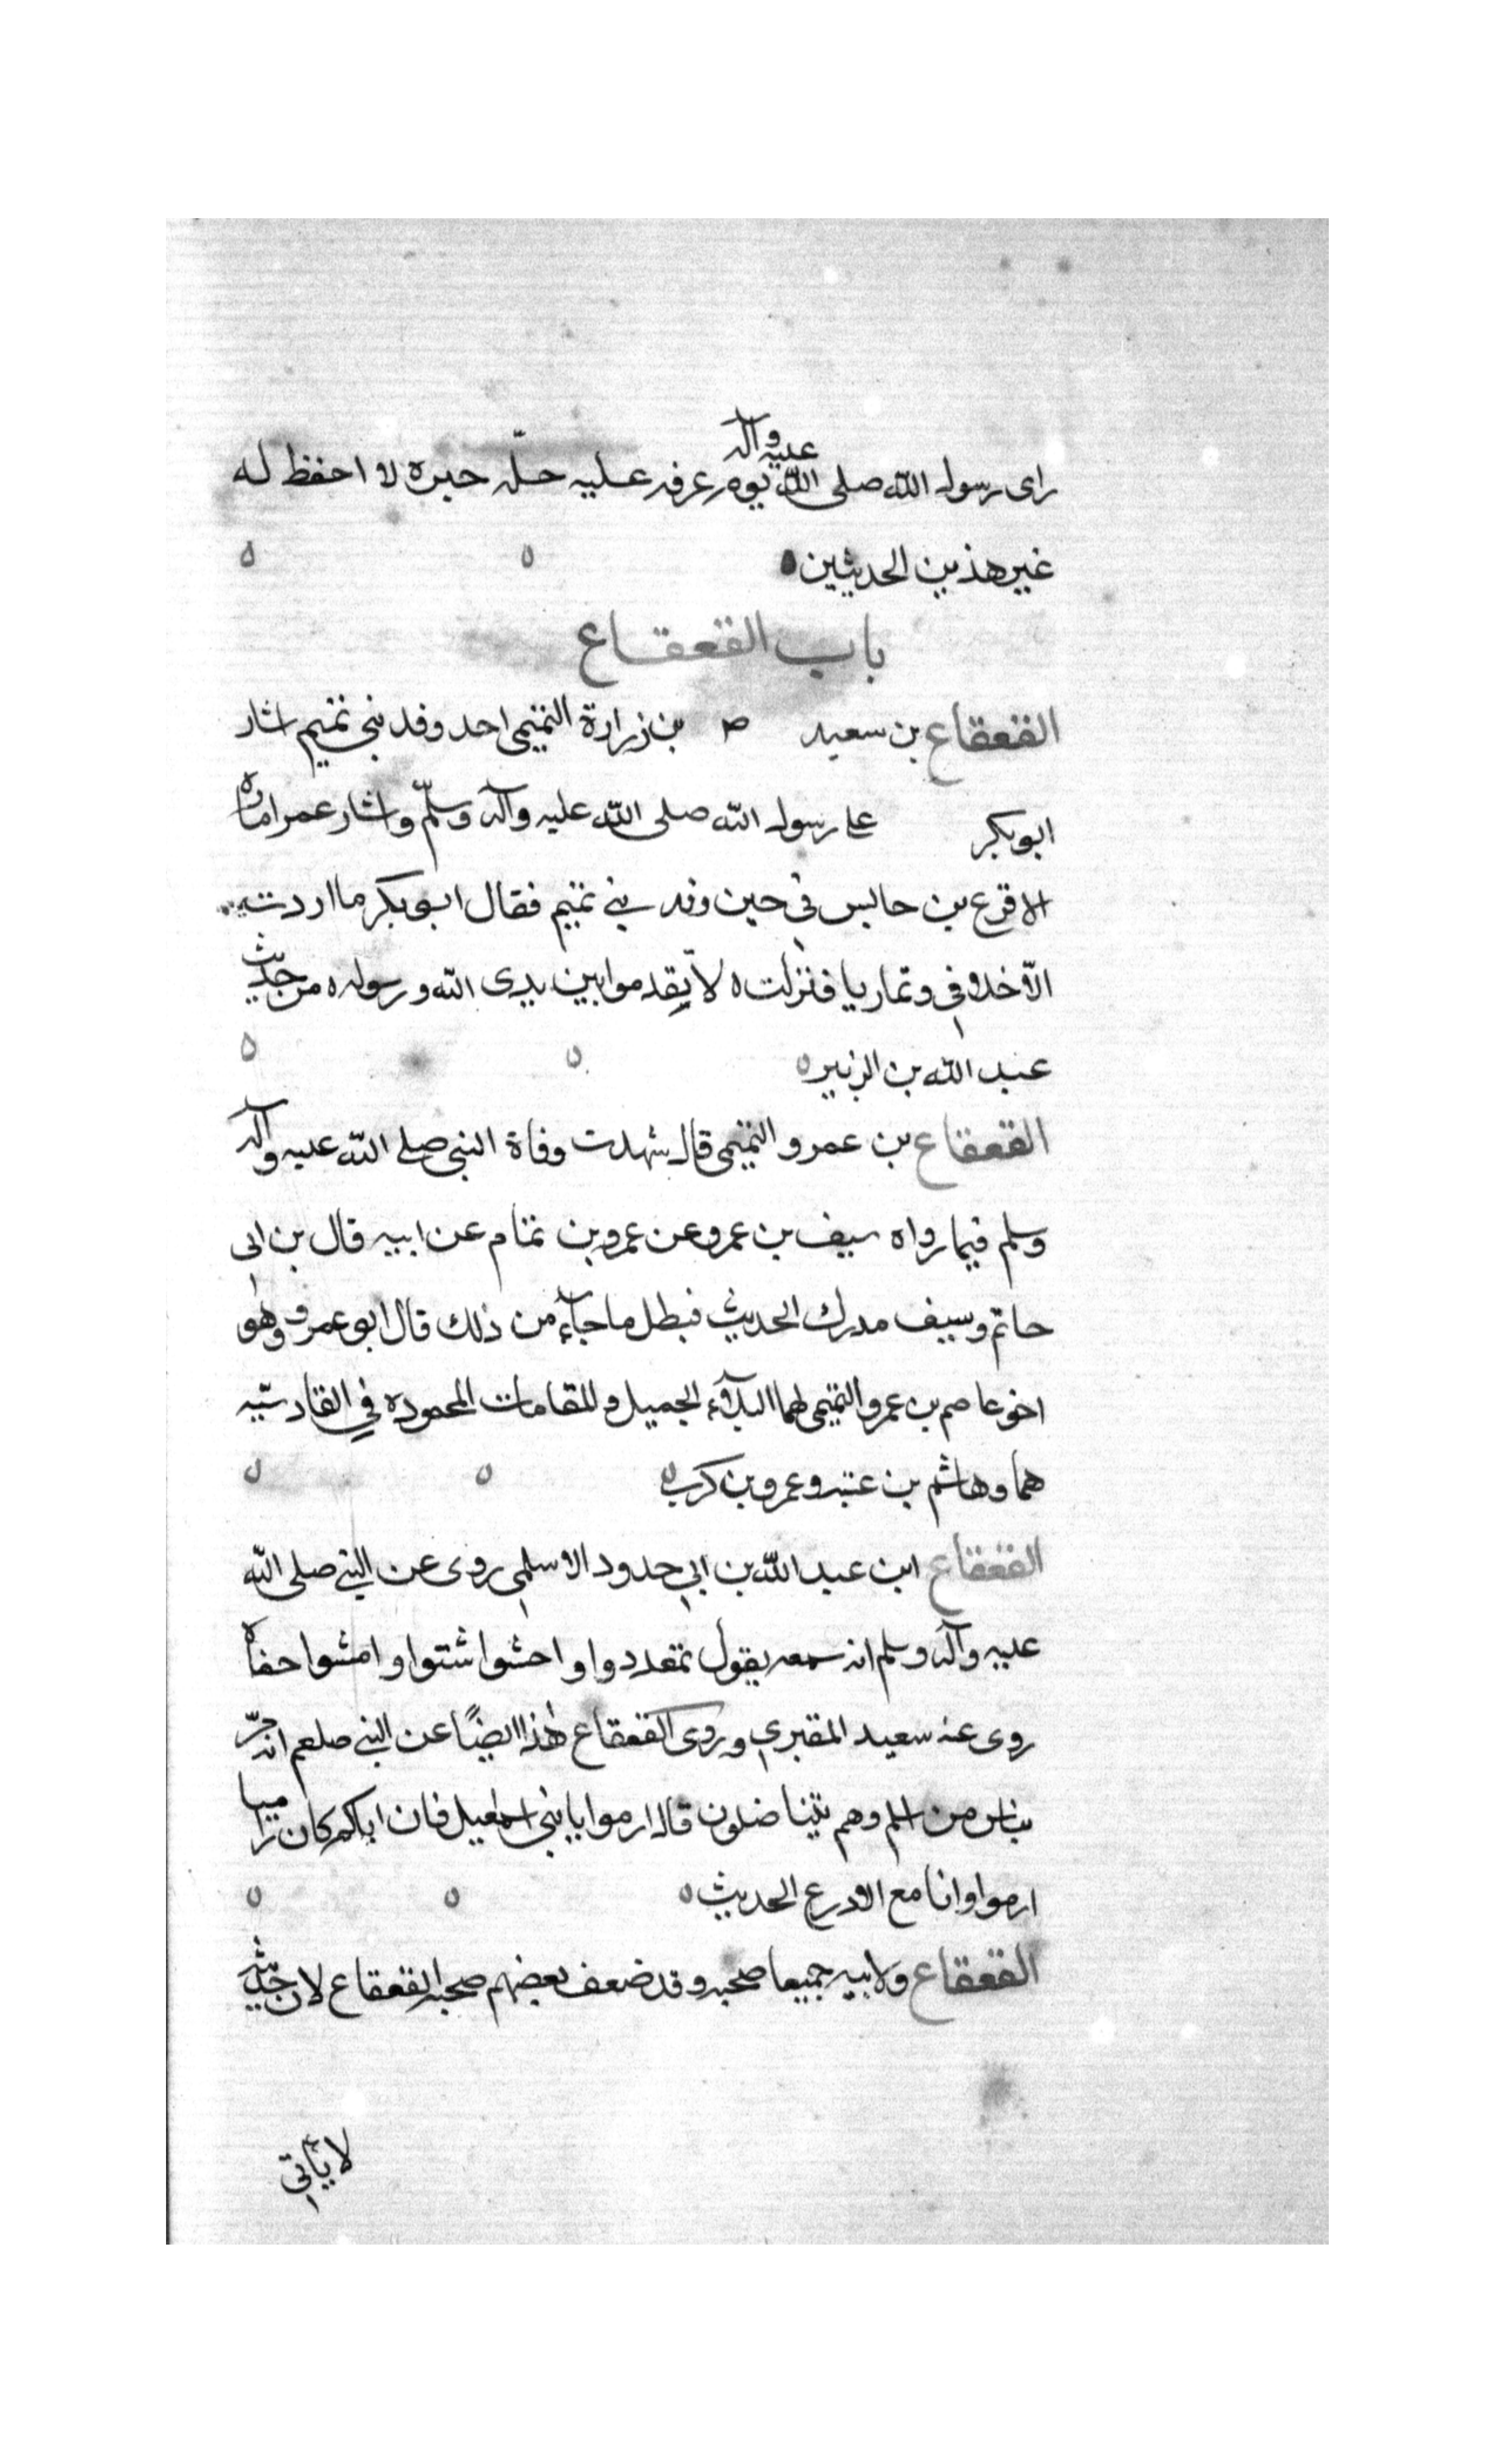 راى رسول الله صلى الله عليه وآله يوم عرفه عليه حلّه حبره لا احفظ له
غير هذين الحديثين
باب القعقاع
القعقاع بن سعيد بن زرارة التميمى احد وفد بني تميم اشار
ابو بكر على رسول الله صلى الله عليه وآله وسلّم واشار عمر اماره
الاقرع بن حابس في حين وفد بني تميم فقال ابو بكر ما اردت
الّا خلافى وتماريا فنزلت لا يقدموا بين يدى الله ورسوله من حديث
عبد الله بن الزبير
القعقاع بن عمرو التميمى قال شهدت وفاة النبى صلى الله عليه وآله
وسلم فيما رواه سيف بن عمرو عن عمرو بن تمام عن ابيه قال بن ابى
حاتم وسيف مدرك الحديث فبطل ما جاء من ذلك قال ابو عمرو وهو
اخو عاصم بن عمرو التميمى لهما البلاء الجميل والمقامات المحموده في القادسيّه
هما وهاشم بن عتبه وعمرو بن كرب
القعقاع ابن عبد الله بن ابي حدود الاسلمى روى عن النبي صلى الله
عليه وآله وسلم انه سمعه يقول تمعددوا واحشوا شتوا وامشوا حفاه
روى عنه سعيد المقبري وروى القعقاع هذا ايضًا عن النبي صلعم انه مرّ
بناس من اسلم وهم يتناضلون قال ارموا يا بني اسمعيل فان اباكم كان راميا
ارموا وانا مع الادرع الحديث
القعقاع ولابيه جميعا صحبه وقد ضعف بعضهم صحبه القعقاع لان حديثه
لا يأتى